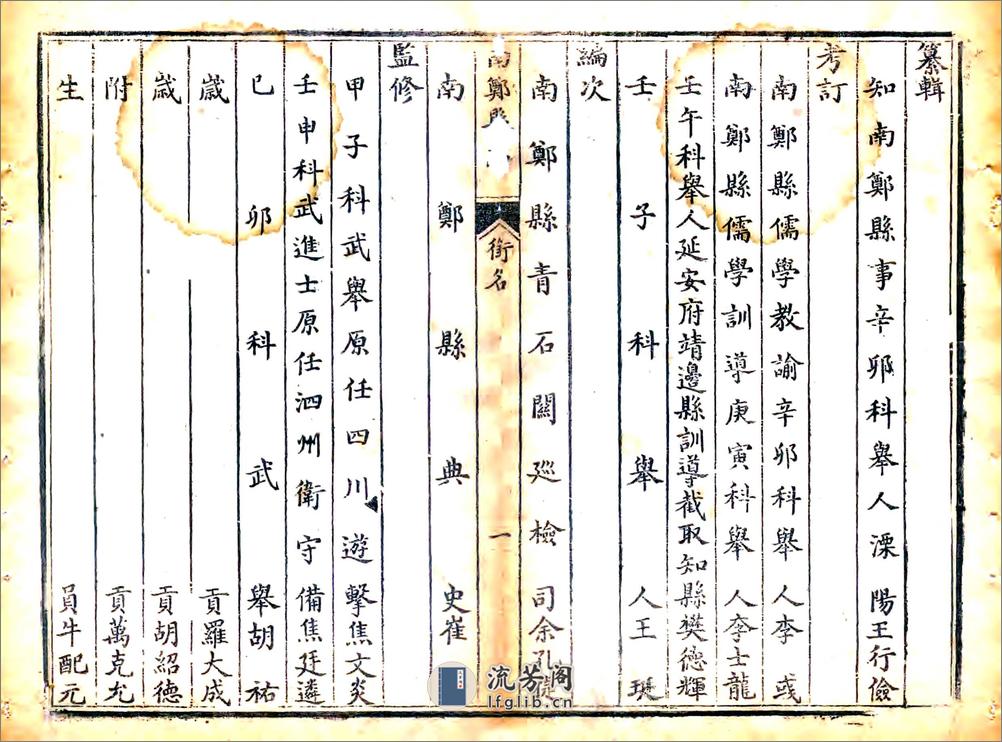 纂輯
知南鄭縣事辛卯科舉人溧陽王行儉
考訂
南鄭縣儒學教諭辛卯科舉人李彧
南鄭縣儒學訓導庚寅科舉人李士龍
壬午科舉人延安府靖邊縣訓導截取知縣樊德輝
壬子科舉人王珽
編次
南鄭縣青石關巡檢司余孔
南鄭縣
銜名
一
南鄭縣典史崔
監修
甲子科武舉原任四川遊擊焦文炎
壬申科武進士原任泗州衛守備焦廷遴
己卯科武舉胡祐
歲貢羅大成
歲貢胡紹德
附貢萬克允
生員牛配元
流芳阁
lfglib.cn